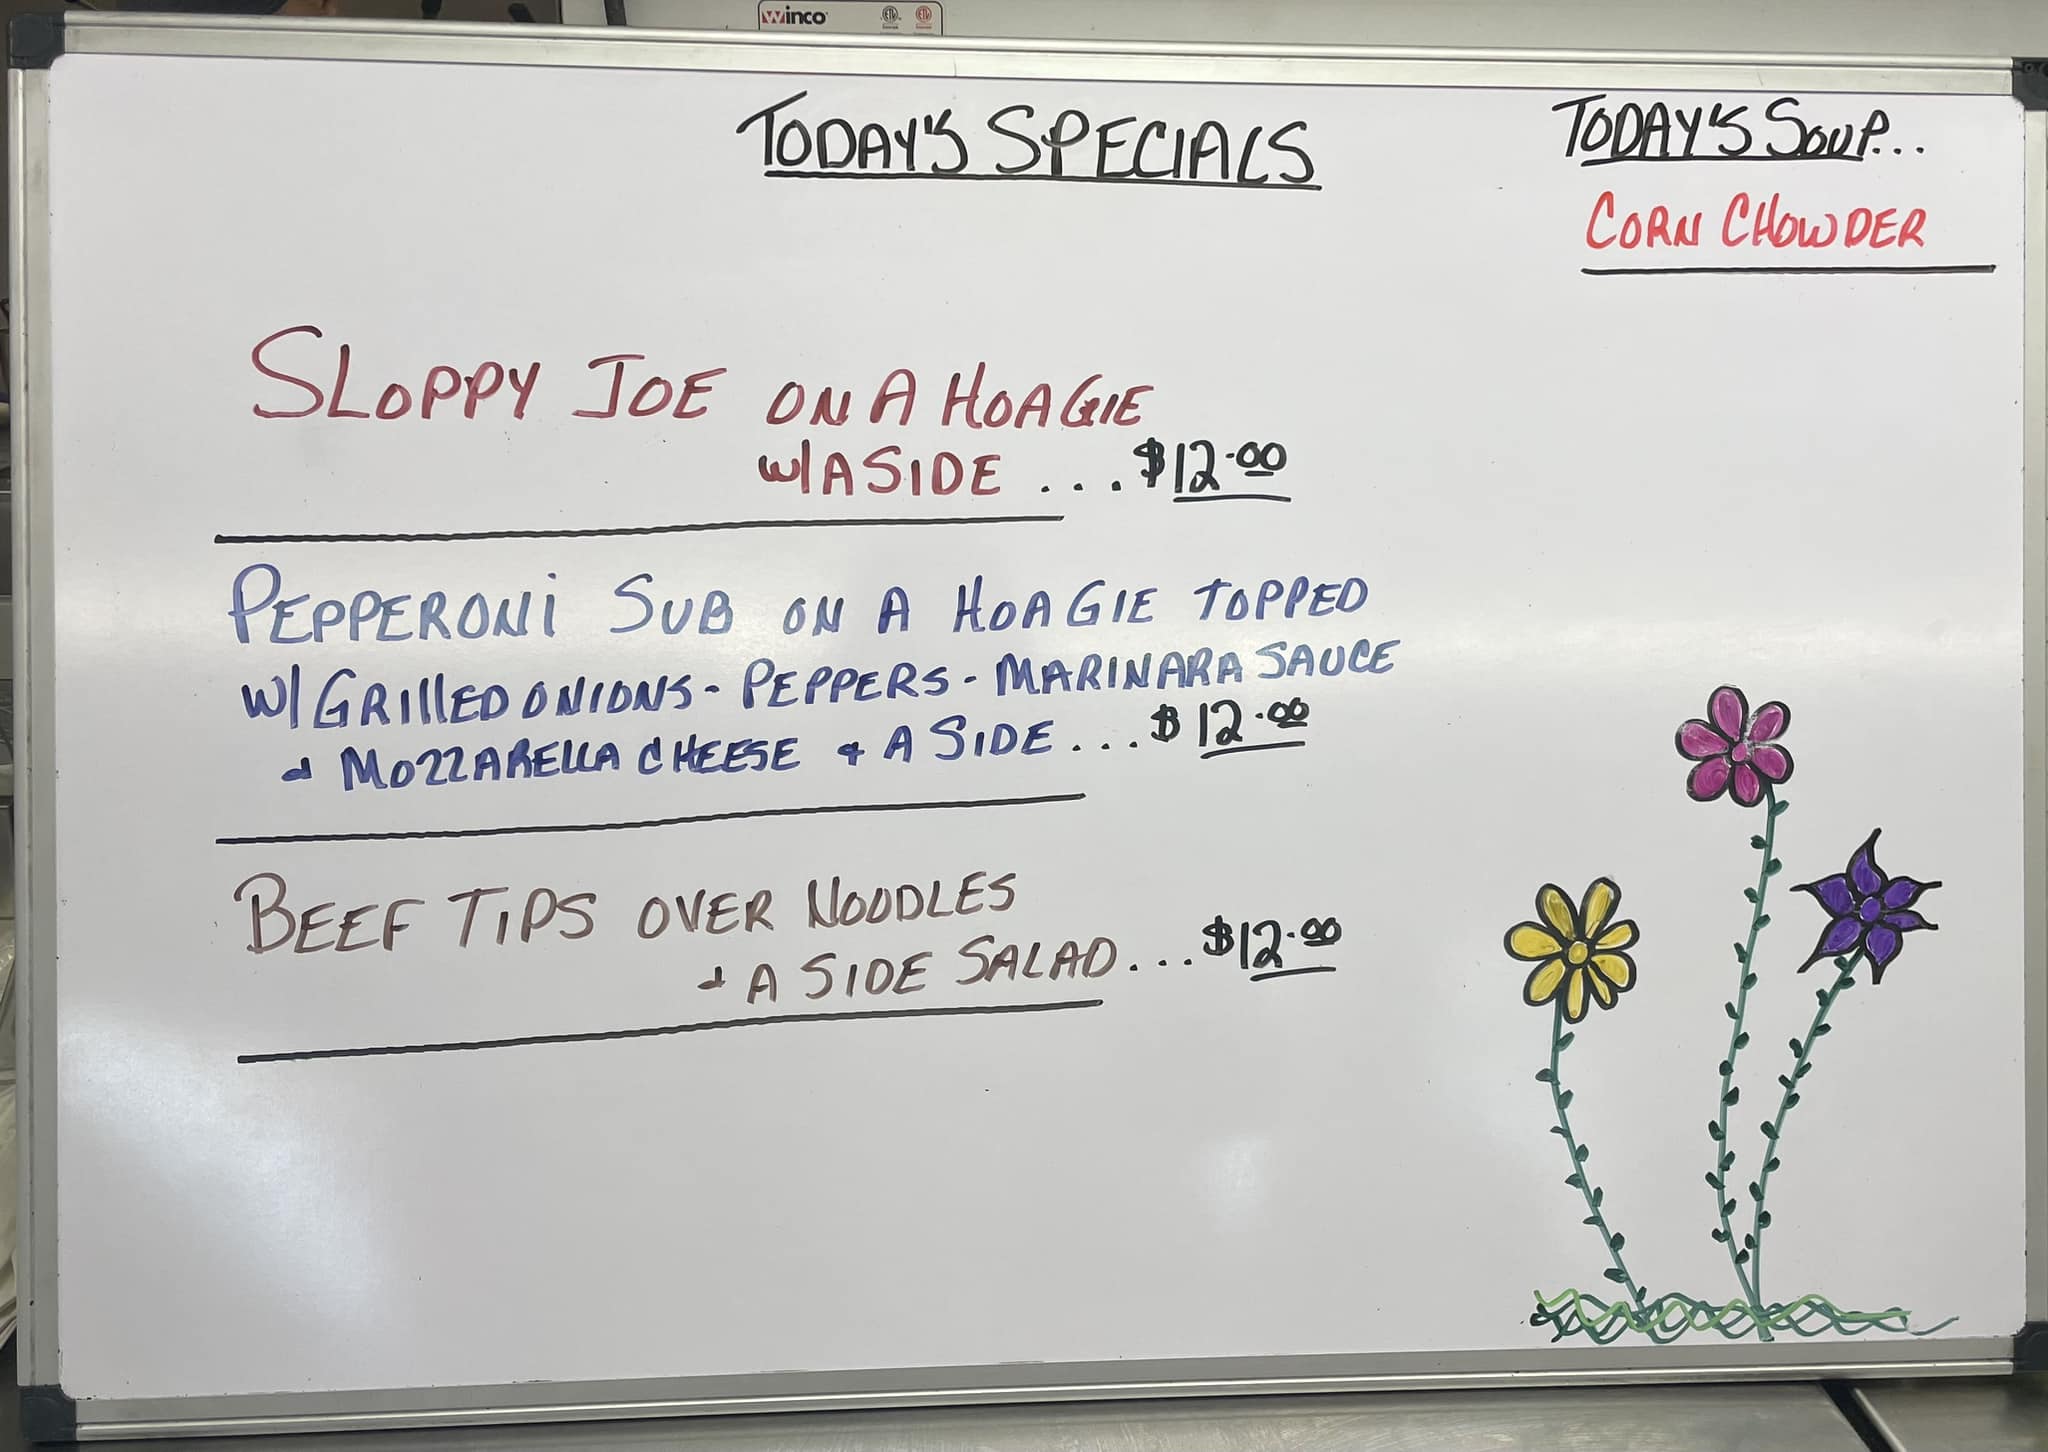 Winco
TODAY'S SPECIALS
TODAY'S SOUP...
CORN CHOWDER
SLOPPY JOE ON A HOAGIE
W/ A SIDE ... $12.00
PEPPERONI SUB ON A HOAGIE TOPPED
W/ GRILLED ONIONS - PEPPERS - MARINARA SAUCE
& MOZZARELLA CHEESE & A SIDE ... $12.00
BEEF TIPS OVER NOODLES
& A SIDE SALAD ... $12.00